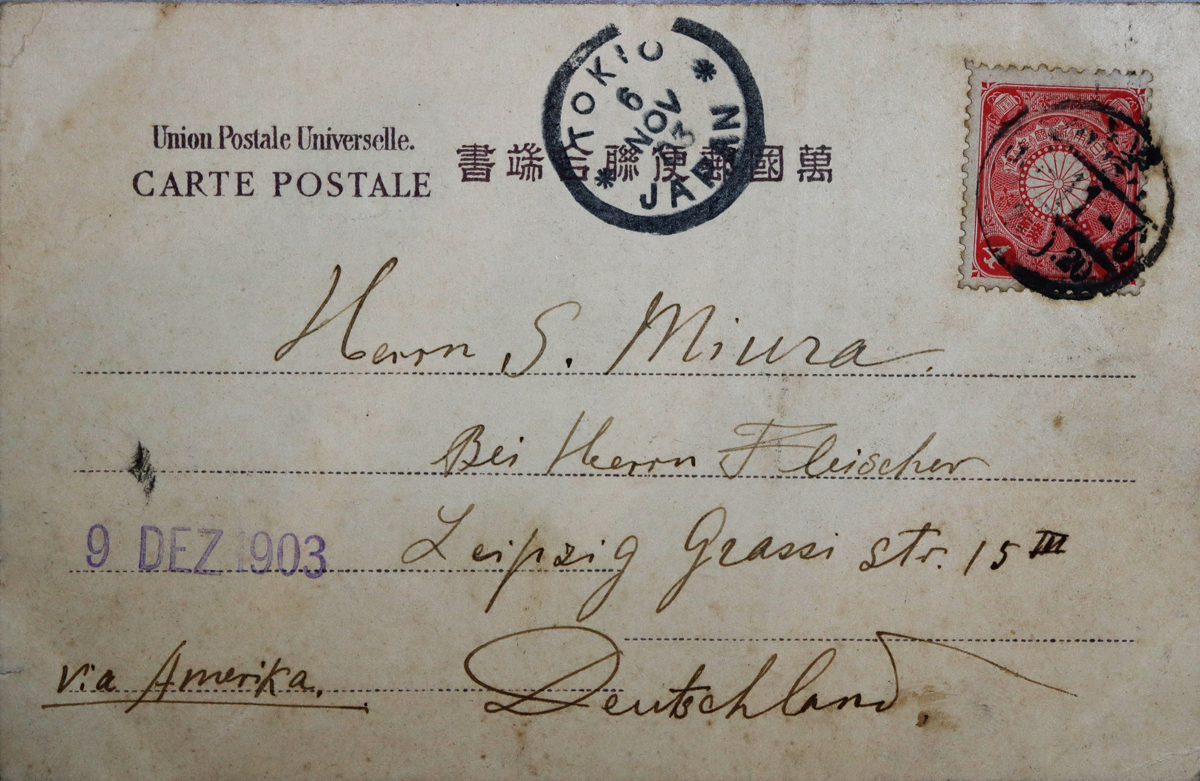 TOKIO
6
NOV
03
JAPAN
Union Postale Universelle.
CARTE POSTALE
書端合聯便郵國萬
Herrn S. Miura.
Bei Herrn Fleischer
9 DEZ 1903
Leipzig Grassi str. 15 III
via Amerika.
Deutschland.